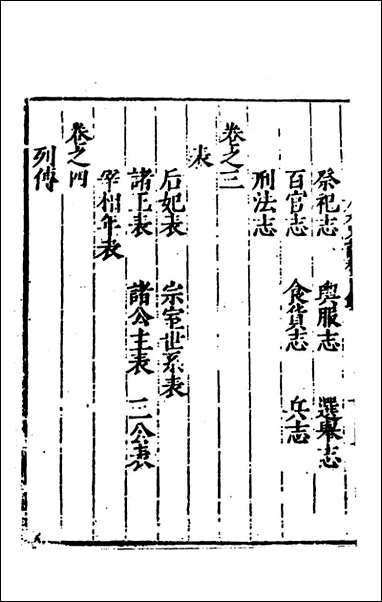 祭祀志 輿服志 選舉志
百官志 食貨志 兵志
刑法志
卷之三
表
后妃表 宗室世系表
諸王表 諸公主表 三公表
宰相年表
卷之四
列傳